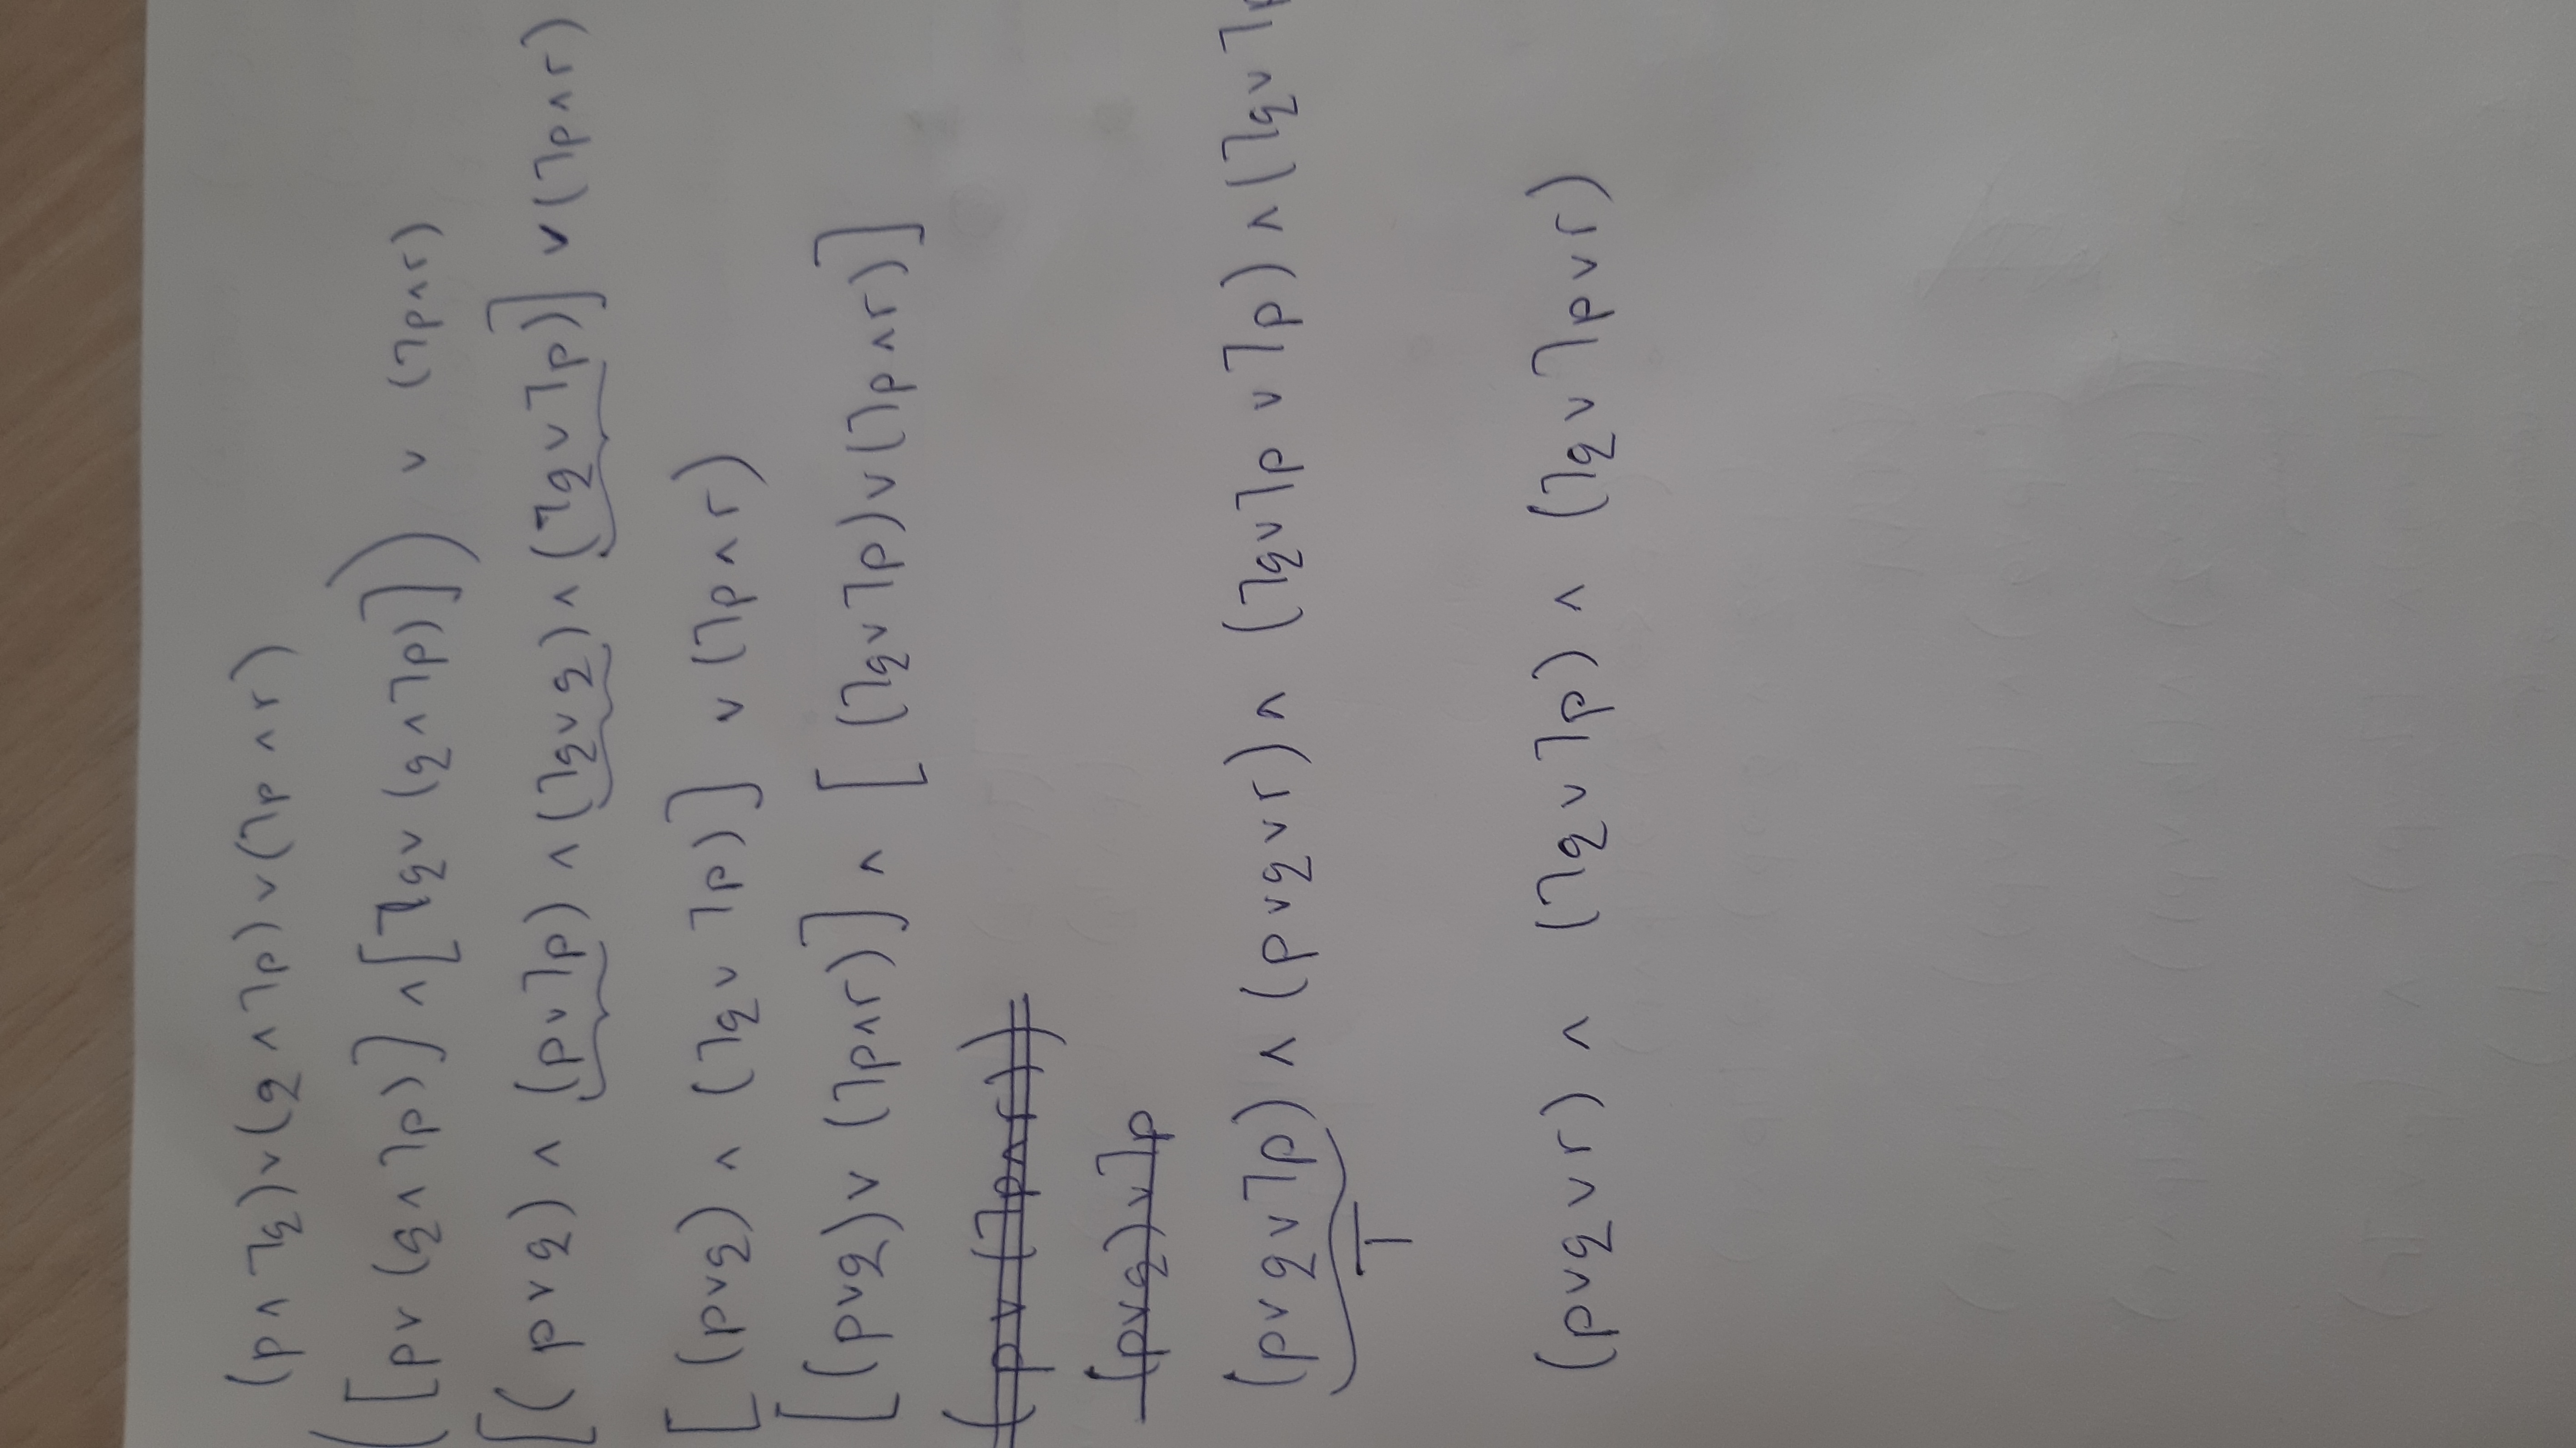 (p∧¬q)∨(q∧¬p)∨(¬p∧r)
([p∨(q∧¬p)]∧[¬q∨(q∧¬p)]) ∨ (¬p∧r)
[(p∨q)∧(p∨¬p)∧(¬q∨q)∧(¬q∨¬p)]∨(¬p∧r)
[(p∨q)∧(¬q∨¬p)]∨(¬p∧r)
[(p∨q)∨(¬p∧r)]∧[(¬q∨¬p)∨(¬p∧r)]
(p∨(¬p∧r))
(p∨q)∨¬p
(p∨q∨¬p)∧(p∨q∨r)∧(¬q∨¬p∨¬p)∧(¬q∨¬p
T
(p∨q∨r)∧(¬q∨¬p)∧(¬q∨¬p∨r)